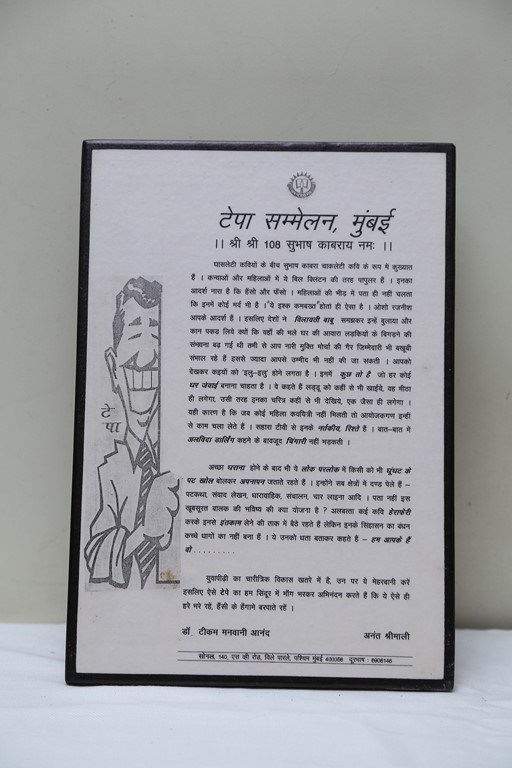 टेपा सम्मेलन, मुंबई
।। श्री श्री 108 सुभाष काबराय नमः ।।
घासलेटी कवियों के बीच सुभाष काबरा चाकलेटी कवि के रूप में कुख्यात
है । कन्याओं और महिलाओं में ये बिल क्लिंटन की तरह पापुलर हैं । इनका
आदर्श नारा है कि हँसो और फँसो । महिलाओं की भीड़ में पता ही नहीं चलता
कि इनमें कोई मर्द भी है । 'ये इश्क कमबख्त' होता ही ऐसा है । ओशो रजनीश
आपके आदर्श हैं । इसलिए देशों ने विलायती बाबू समझकर इन्हें बुलाया और
कान पकड़ लिये क्यों कि वहाँ की भले घर की आवारा लड़कियों के बिगडने की
संभवना बढ़ गई थी तभी से आप नारी मुक्ति मोर्चा की गैर जिम्मेदारी भी बखूबी
संभाल रहे हैं इससे ज्यादा आपसे उम्मीद भी नहीं की जा सकती । आपको
देखकर कइयों को 'इलु-इलु' होने लगता है । इनमें कुछ तो है जो हर कोई
घर जंवाई बनाना चाहता है । ये कहते हैं लड्डू को कहीं से भी खाईये, वह मीठा
ही लगेगा, उसी तरह इनका चरित्र कहीं से भी देखिये, एक जैसा ही लगेगा ।
यही कारण है कि जब कोई महिला कवयित्री नहीं मिलती तो आयोजकगण इन्हीं
से काम चला लेते हैं । सहारा टीवी से इनके नर्तकीय, रिश्ते हैं । बात-बात में
अलविदा डार्लिंग कहने के बावजूद चिंगारी नहीं भड़कती ।
अच्छा घराना होने के बाद भी ये लोक परलोक में किसी को भी घूंघट के
पट खोल बोलकर अपनापन जताते रहते हैं । इन्होंने सब क्षेत्रों में दण्ड पेले हैं –
पटकथा, संवाद लेखन, धारावाहिक, संचालन, चार लाइना आदि । पता नहीं इस
खूबसूरत बालक की भविष्य की क्या योजना है ? अलबत्ता कई कवि हेराफेरी
करके इनसे इंतकाम लेने की ताक में बैठे रहते हैं लेकिन इनके सिंहासन का बंधन
कच्चे धागों का नहीं बना हैं । ये उनको धता बताकर कहते हैं – हम आपके हैं
वो . . . . . . . . .
युवापीढ़ी का चारीत्रिक विकास खतरे में है, उन पर ये मेहरबानी करें
इसलिए ऐसे टेपे का हम सिंदूर में माँग भरकर अभिनंदन करते हैं कि ये ऐसे ही
हरे भरे रहें, हँसी के हँगामे बरपाते रहें ।
डॉ. टीकम मनवानी आनंद अनंत श्रीमाली
सोनल, 140, एस वी रोड, विले पारले, पश्चिम मुंबई 400056 दूरभाष : 6906146
टे
पा